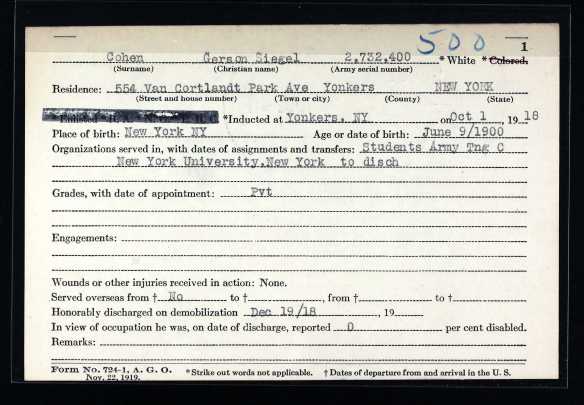 500
1
Cohen Gerson Siegel 2,732,400 * White * Colored.
(Surname) (Christian name) (Army serial number)
Residence: 554 Van Cortlandt Park Ave Yonkers NEW YORK
(Street and house number) (Town or city) (County) (State)
*Inducted at Yonkers, NY on Oct 1, 1918
Place of birth: New York NY Age or date of birth: June 9/1900
Organizations served in, with dates of assignments and transfers: Students Army Tng C
New York University,New York to disch
Grades, with date of appointment: Pvt
Engagements:
Wounds or other injuries received in action: None.
Served overseas from † No to †, from † to †
Honorably discharged on demobilization Dec 19/18, 19
In view of occupation he was, on date of discharge, reported 0 per cent disabled.
Remarks:
Form No. 724-1, A. G. O. *Strike out words not applicable. † Dates of departure from and arrival in the U. S.
Nov. 22, 1919.